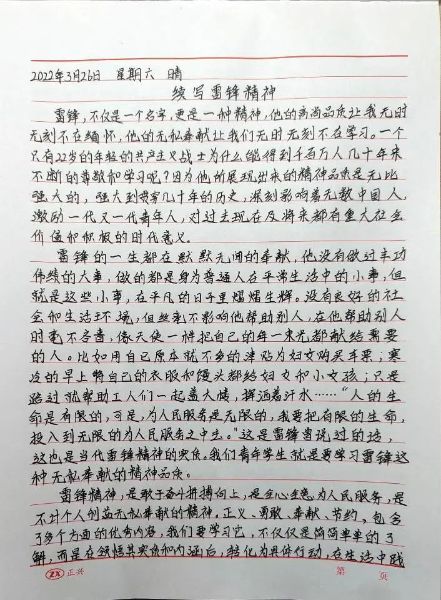 2022年3月26日 星期六 晴
续写雷锋精神
雷锋,不仅是一个名字,更是一种精神,他的高尚品质让我无时
无刻不在缅怀,他的无私奉献让我们无时无刻不在学习。一个
只有22岁的年轻的共产主义战士为什么能得到千百万人几十年来
不断的尊敬和学习呢?因为他所展现出来的精神品质是无比
强大的,强大到贯穿几十年的历史,深刻影响着无数中国人,
激励一代又一代青年人,对过去现在及将来都有重大社会
价值和积极的时代意义。
雷锋的一生都在默默无闻的奉献,他没有做过丰功
伟绩的大事,做的都是身为普通人在平常生活中的小事,但
就是这些小事,在平凡的日子里熠熠生辉。没有良好的社
会和生活环境,但丝毫不影响他帮助别人,在他帮助别人
时毫不吝啬,像天使一样把自己的每一束光都献给需要
的人。比如用自己原本就不多的津贴为妇女购买车票;寒
冷的早上将自己的衣服和馒头都给妇女和小女孩;只是
路过就帮助工人们一起盖大楼,挥洒着汗水……“人的生
命是有限的,可是,为人民服务是无限的,我要把有限的生命,
投入到无限的为人民服务之中去。”这是雷锋曾说过的话,
这也是当代雷锋精神的实质。我们青年学生就是要学习雷锋这
种无私奉献的精神品质。
雷锋精神,是敢于奋斗拼搏向上,是全心全意为人民服务,是
不计个人创益无私奉献的精神。正义、勇敢、奉献、节约,包含
了多个方面的优秀内容,我们要学习它,不仅仅是简简单单的了
解,而是在领悟其实质和内涵后,转化为具体行动,在生活中践
正兴
第 页